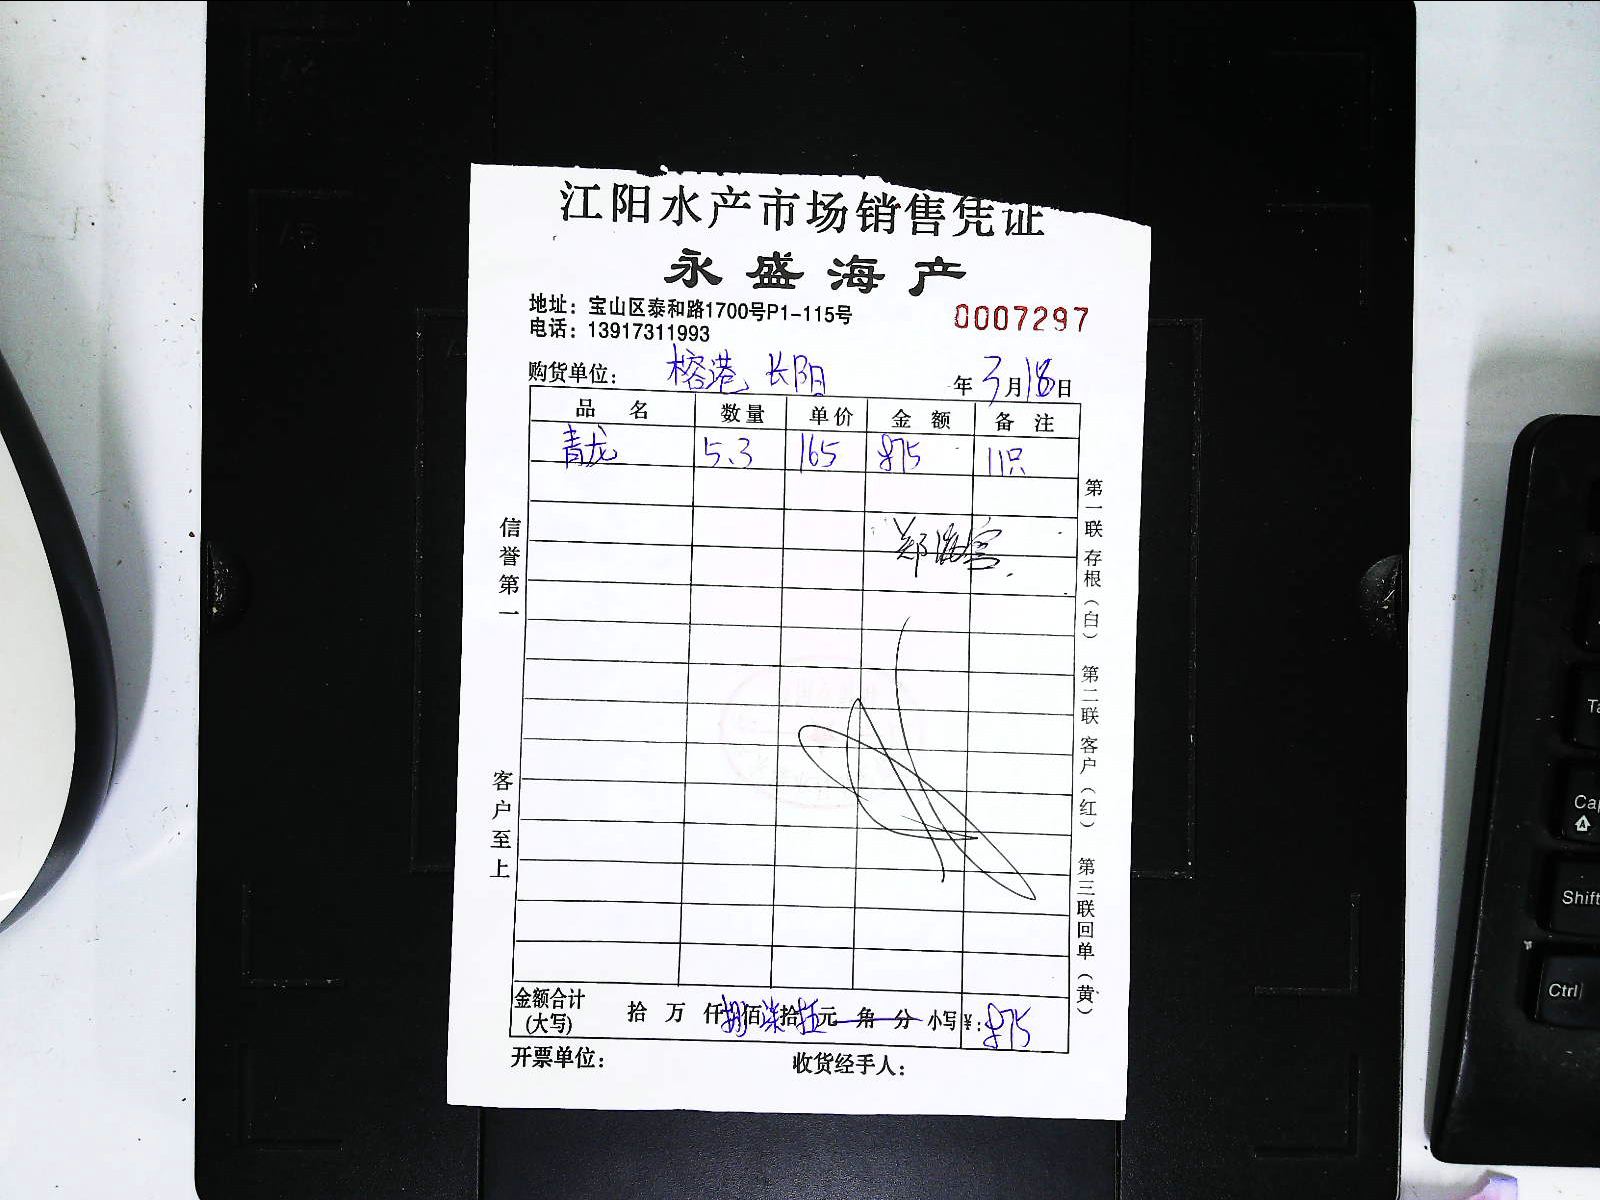 江阳水产市场销售凭证
永盛海产
地址：宝山区泰和路1700号P1-115号
电话：13917311993
0007297
购货单位：榕港 长阳 年 3月18日
品名 数量 单价 金额 备注
青龙 5.3 165 875 11只
郑海宫
信誉第一
客户至上
第一联存根（白）
第二联客户（红）
第三联回单（黄）
金额合计(大写) 拾 万 仟 捌佰柒拾伍元 角 分 小写¥:875
开票单位： 收货经手人：
Shift
Ctrl